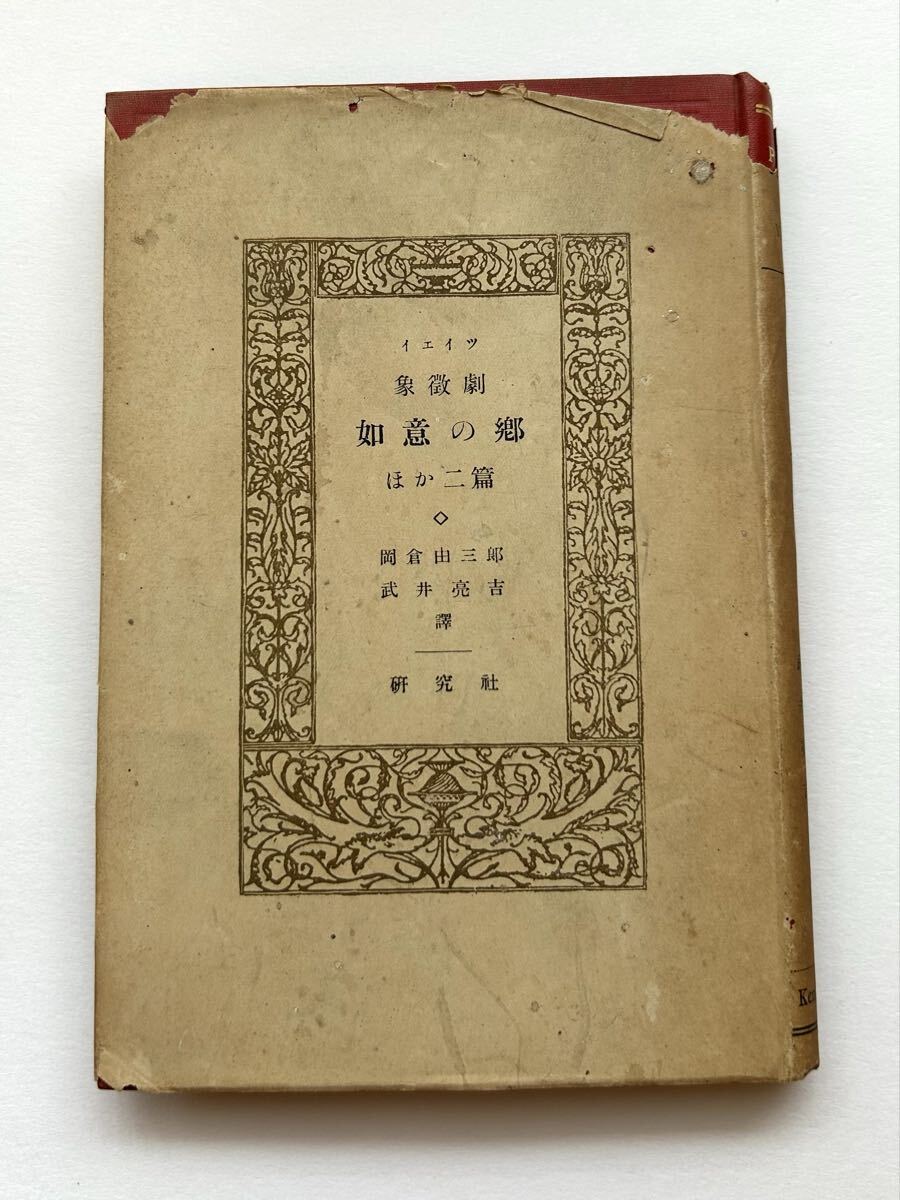 イエイツ
象徴劇
如意の郷
ほか二篇
岡倉由三郎
武井亮吉
譯
研究社